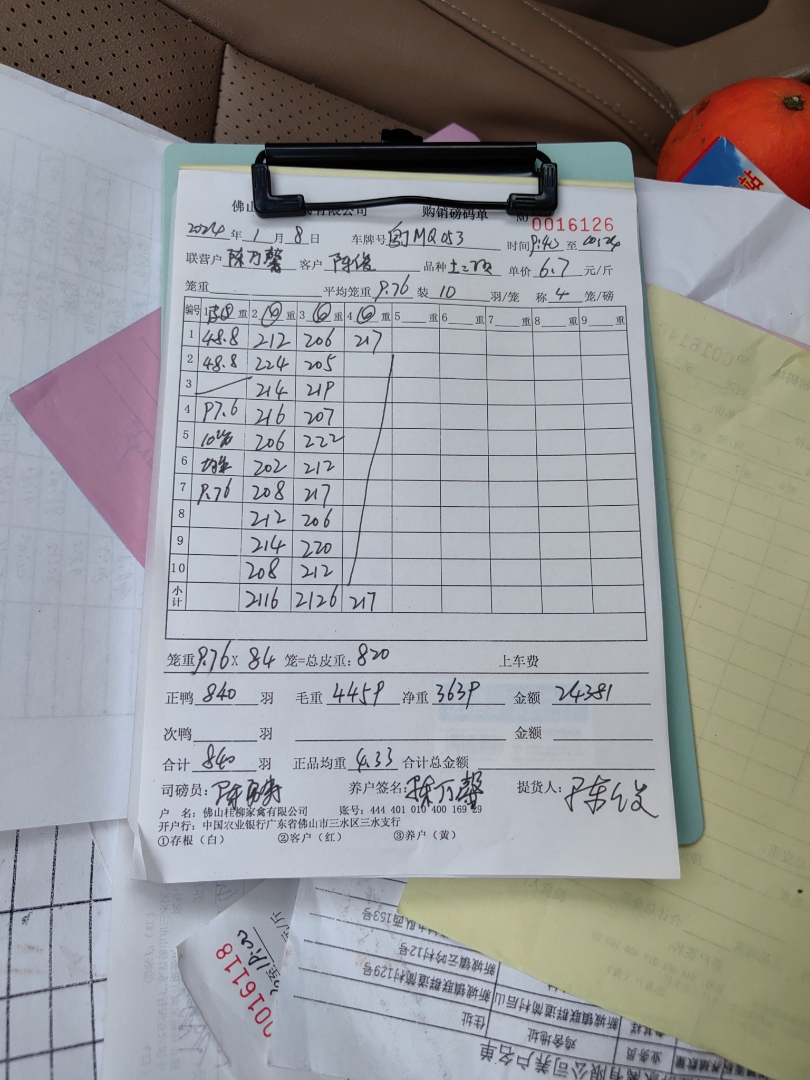 佛山 有限公司 购销磅码单 NO 0016126
2024年1月8日 车牌号 MQ053 时间9:40至
联营户 陈乃馨 客户 陈俊 品种 单价6.7元/斤
笼重 平均笼重9.76 装10羽/笼 称4笼/磅
编号 1 重 2 重 3 重 4 重 5 重 6 重 7 重 8 重 9 重
1 48.8 212 206 217
2 48.8 224 205
3 214 219
4 97.6 216 207
5 206 222
6 202 212
7 9.76 208 217
8 212 206
9 214 220
10 208 212
小计 2116 2126 217
笼重9.76×84笼=总皮重:820 上车费
正鸭840羽 毛重4459 净重3639 金额24381
次鸭 羽 金额
合计840羽 正品均重4.33 合计总金额
司磅员: 养户签名:陈乃馨 提货人:
户 名:佛山桂柳家禽有限公司 账号:444 401 010 400 169 29
开户行:中国农业银行广东省佛山市三水区三水支行
①存根(白) ②客户(红) ③养户(黄)
0016118
元/斤
新城镇联群道简村129号
新城镇云吟村12号
住址
鸡舍地址
业务员
有限公司养户名单
站